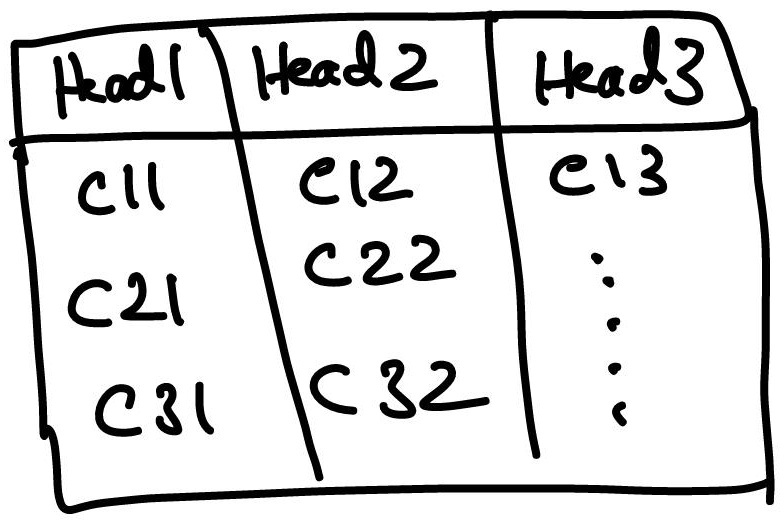 Head1 Head2 Head3
C11 C12 C13
C21 C22
C31 C32